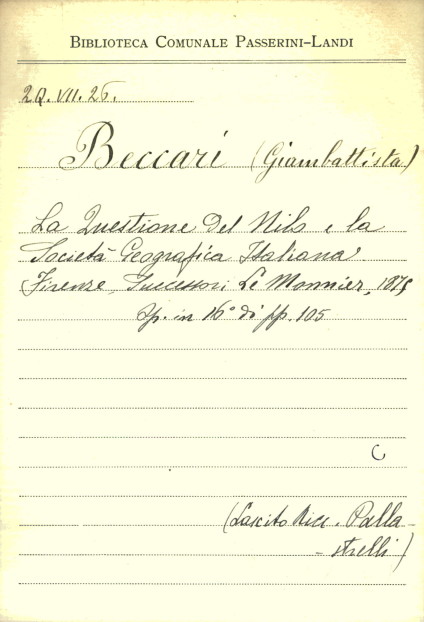 BIBLIOTECA COMUNALE PASSERINI-LANDI
2Q.VII.26.
Beccari (Giambattista)
La Questione del Nilo e la
Società Geografica Italiana
Firenze, Successori Le Monnier, 1875
Op. in 16° di pp. 105
C
(Lascito Ricc. Palla-
-strelli)